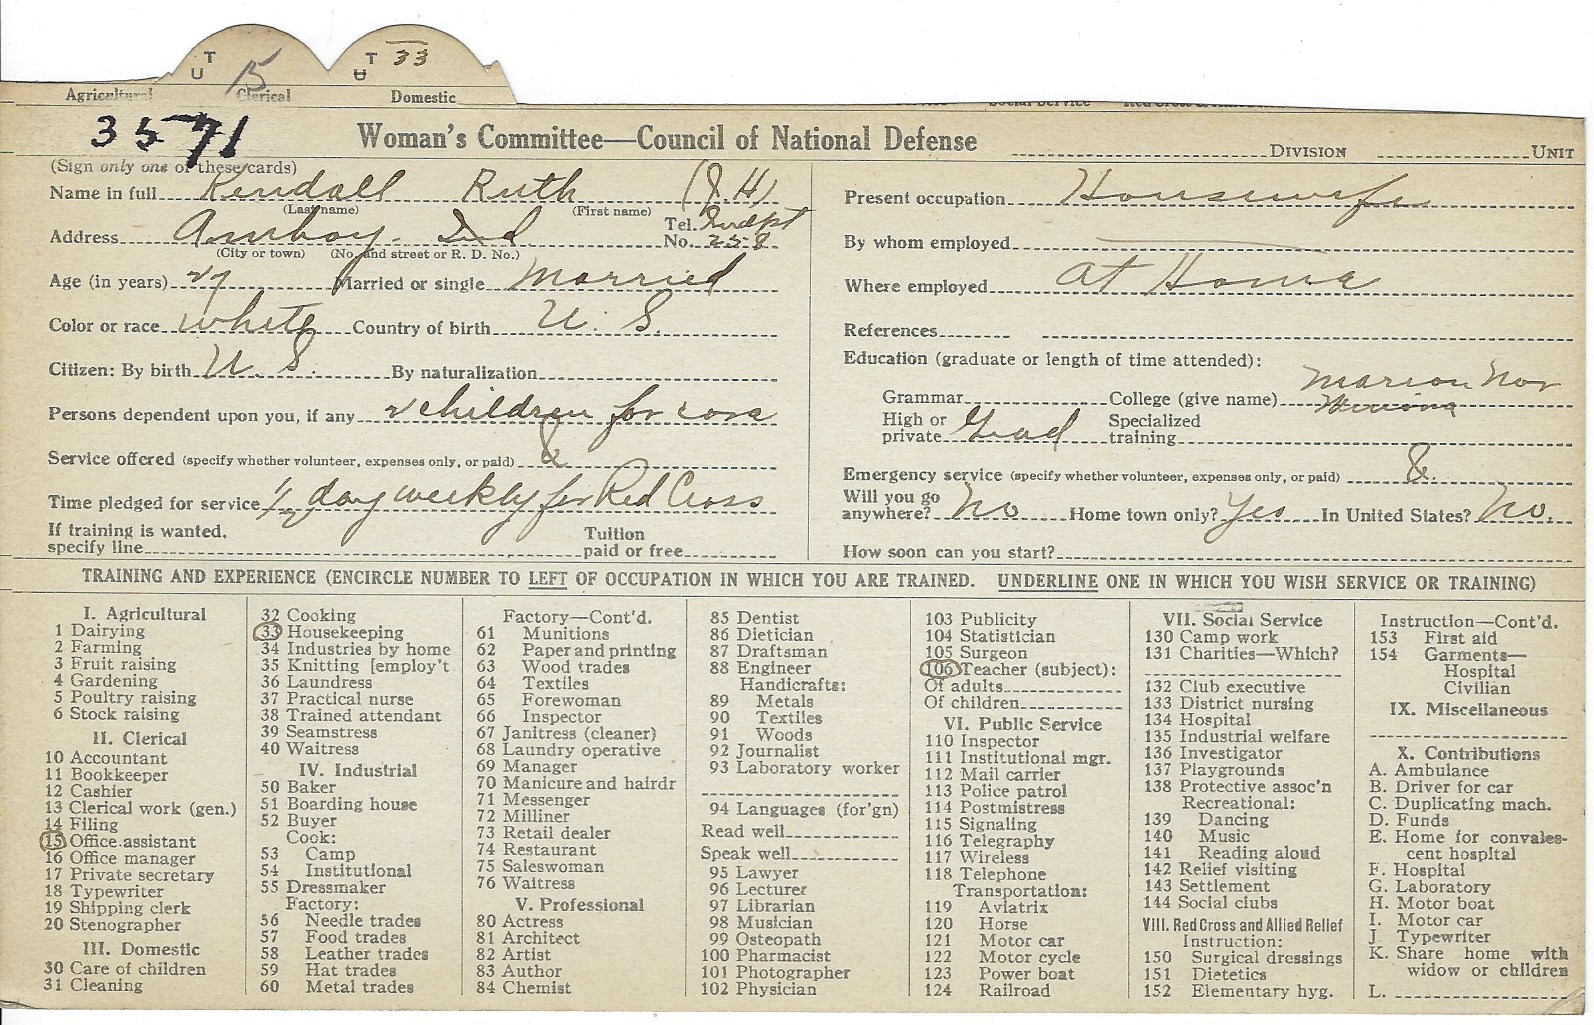 T U 15 T U 33
Agricultural Clerical Domestic
3571 Woman's Committee—Council of National Defense DIVISION UNIT
(Sign only one of these cards)
Name in full Kendall Ruth (J.H)
(Last name) (First name)
Address Amboy. Ind Tel. No. Indpt 258
(City or town) (No. and street or R. D. No.)
Age (in years) 27 Married or single Married
Color or race white Country of birth U. S.
Citizen: By birth U. S. By naturalization
Persons dependent upon you, if any 2 children for care
Service offered (specify whether volunteer, expenses only, or paid)
Time pledged for service 1/2 day weekly for Red Cross
If training is wanted, specify line Tuition paid or free
Present occupation Housewife
By whom employed
Where employed at Home
References
Education (graduate or length of time attended):
Grammar College (give name) Marion Nor
High or private Grad Specialized training
Emergency service (specify whether volunteer, expenses only, or paid)
Will you go anywhere? No Home town only? Yes In United States? No.
How soon can you start?
TRAINING AND EXPERIENCE (ENCIRCLE NUMBER TO LEFT OF OCCUPATION IN WHICH YOU ARE TRAINED. UNDERLINE ONE IN WHICH YOU WISH SERVICE OR TRAINING)
I. Agricultural
1 Dairying
2 Farming
3 Fruit raising
4 Gardening
5 Poultry raising
6 Stock raising
II. Clerical
10 Accountant
11 Bookkeeper
12 Cashier
13 Clerical work (gen.)
14 Filing
15 Office assistant
16 Office manager
17 Private secretary
18 Typewriter
19 Shipping clerk
20 Stenographer
III. Domestic
30 Care of children
31 Cleaning
32 Cooking
33 Housekeeping
34 Industries by home
35 Knitting [employ't
36 Laundress
37 Practical nurse
38 Trained attendant
39 Seamstress
40 Waitress
IV. Industrial
50 Baker
51 Boarding house
52 Buyer
Cook:
53 Camp
54 Institutional
55 Dressmaker
Factory:
56 Needle trades
57 Food trades
58 Leather trades
59 Hat trades
60 Metal trades
Factory—Cont'd.
61 Munitions
62 Paper and printing
63 Wood trades
64 Textiles
65 Forewoman
66 Inspector
67 Janitress (cleaner)
68 Laundry operative
69 Manager
70 Manicure and hairdr
71 Messenger
72 Milliner
73 Retail dealer
74 Restaurant
75 Saleswoman
76 Waitress
V. Professional
80 Actress
81 Architect
82 Artist
83 Author
84 Chemist
85 Dentist
86 Dietician
87 Draftsman
88 Engineer
Handicrafts:
89 Metals
90 Textiles
91 Woods
92 Journalist
93 Laboratory worker
94 Languages (for'gn)
Read well
Speak well
95 Lawyer
96 Lecturer
97 Librarian
98 Musician
99 Osteopath
100 Pharmacist
101 Photographer
102 Physician
103 Publicity
104 Statistician
105 Surgeon
106 Teacher (subject):
Of adults
Of children
VI. Public Service
110 Inspector
111 Institutional mgr.
112 Mail carrier
113 Police patrol
114 Postmistress
115 Signaling
116 Telegraphy
117 Wireless
118 Telephone
Transportation:
119 Aviatrix
120 Horse
121 Motor car
122 Motor cycle
123 Power boat
124 Railroad
VII. Social Service
130 Camp work
131 Charities—Which?
132 Club executive
133 District nursing
134 Hospital
135 Industrial welfare
136 Investigator
137 Playgrounds
138 Protective assoc'n
Recreational:
139 Dancing
140 Music
141 Reading aloud
142 Relief visiting
143 Settlement
144 Social clubs
VIII. Red Cross and Allied Relief
Instruction:
150 Surgical dressings
151 Dietetics
152 Elementary hyg.
Instruction—Cont'd.
153 First aid
154 Garments—
Hospital
Civilian
IX. Miscellaneous
X. Contributions
A. Ambulance
B. Driver for car
C. Duplicating mach.
D. Funds
E. Home for convales-
cent hospital
F. Hospital
G. Laboratory
H. Motor boat
I. Motor car
J. Typewriter
K. Share home with
widow or children
L.